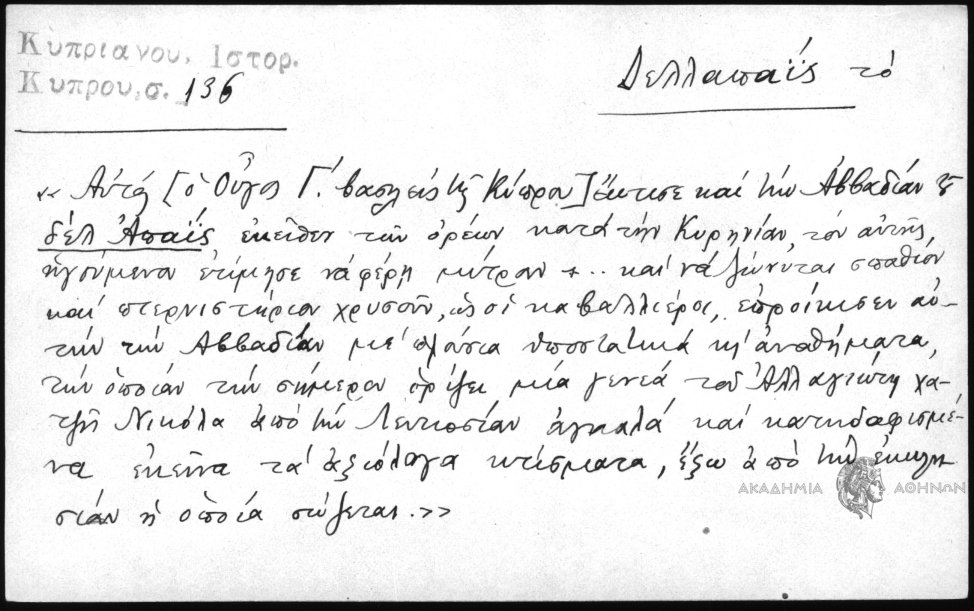 Κυπριανου, Ιστορ.
Κυπρου, σ. 136
Δελλαπαΐς τὸ
« Αὐτὸς [ὁ Οὖγος Γ΄. βασιλεὺς τῆς Κύπρου] ἔκτισε καὶ τὴν Ἀββαδίαν
δὲλ Ἀπαΐς, ἐκεῖθεν τῶν ὀρέων κατὰ τὴν Κυρηνίαν, τὸν αὐτῆς
ἡγούμενον ἐτίμησε νὰ φέρῃ μίτραν +... καὶ νὰ ζώνυται σπαθίον
καὶ πτερνιστήριον χρυσοῦν, ὡς οἱ καβαλλιέροι, ἐπροίκισεν αὐ-
τὴν τὴν Ἀββαδίαν μὲ πλούσια ὑποστατικὰ κ' ἀναθήματα,
τὴν ὁποίαν τὴν σήμερον ὁρίζει μία γενεὰ τοῦ Ἀλλαγιώτη χα-
τζῆ Νικόλα ἀπὸ τὴν Λευκοσίαν ἀγκαλὰ καὶ κατηδαφισμέ-
να ἐκεῖνα τὰ ἀξιόλογα κτίσματα, ἔξω ἀπὸ τὴν ἐκκλη
σίαν ἡ ὁποία σώζεται. »
ΑΚΑΔΗΜΙΑ ΑΘΗΝΩΝ